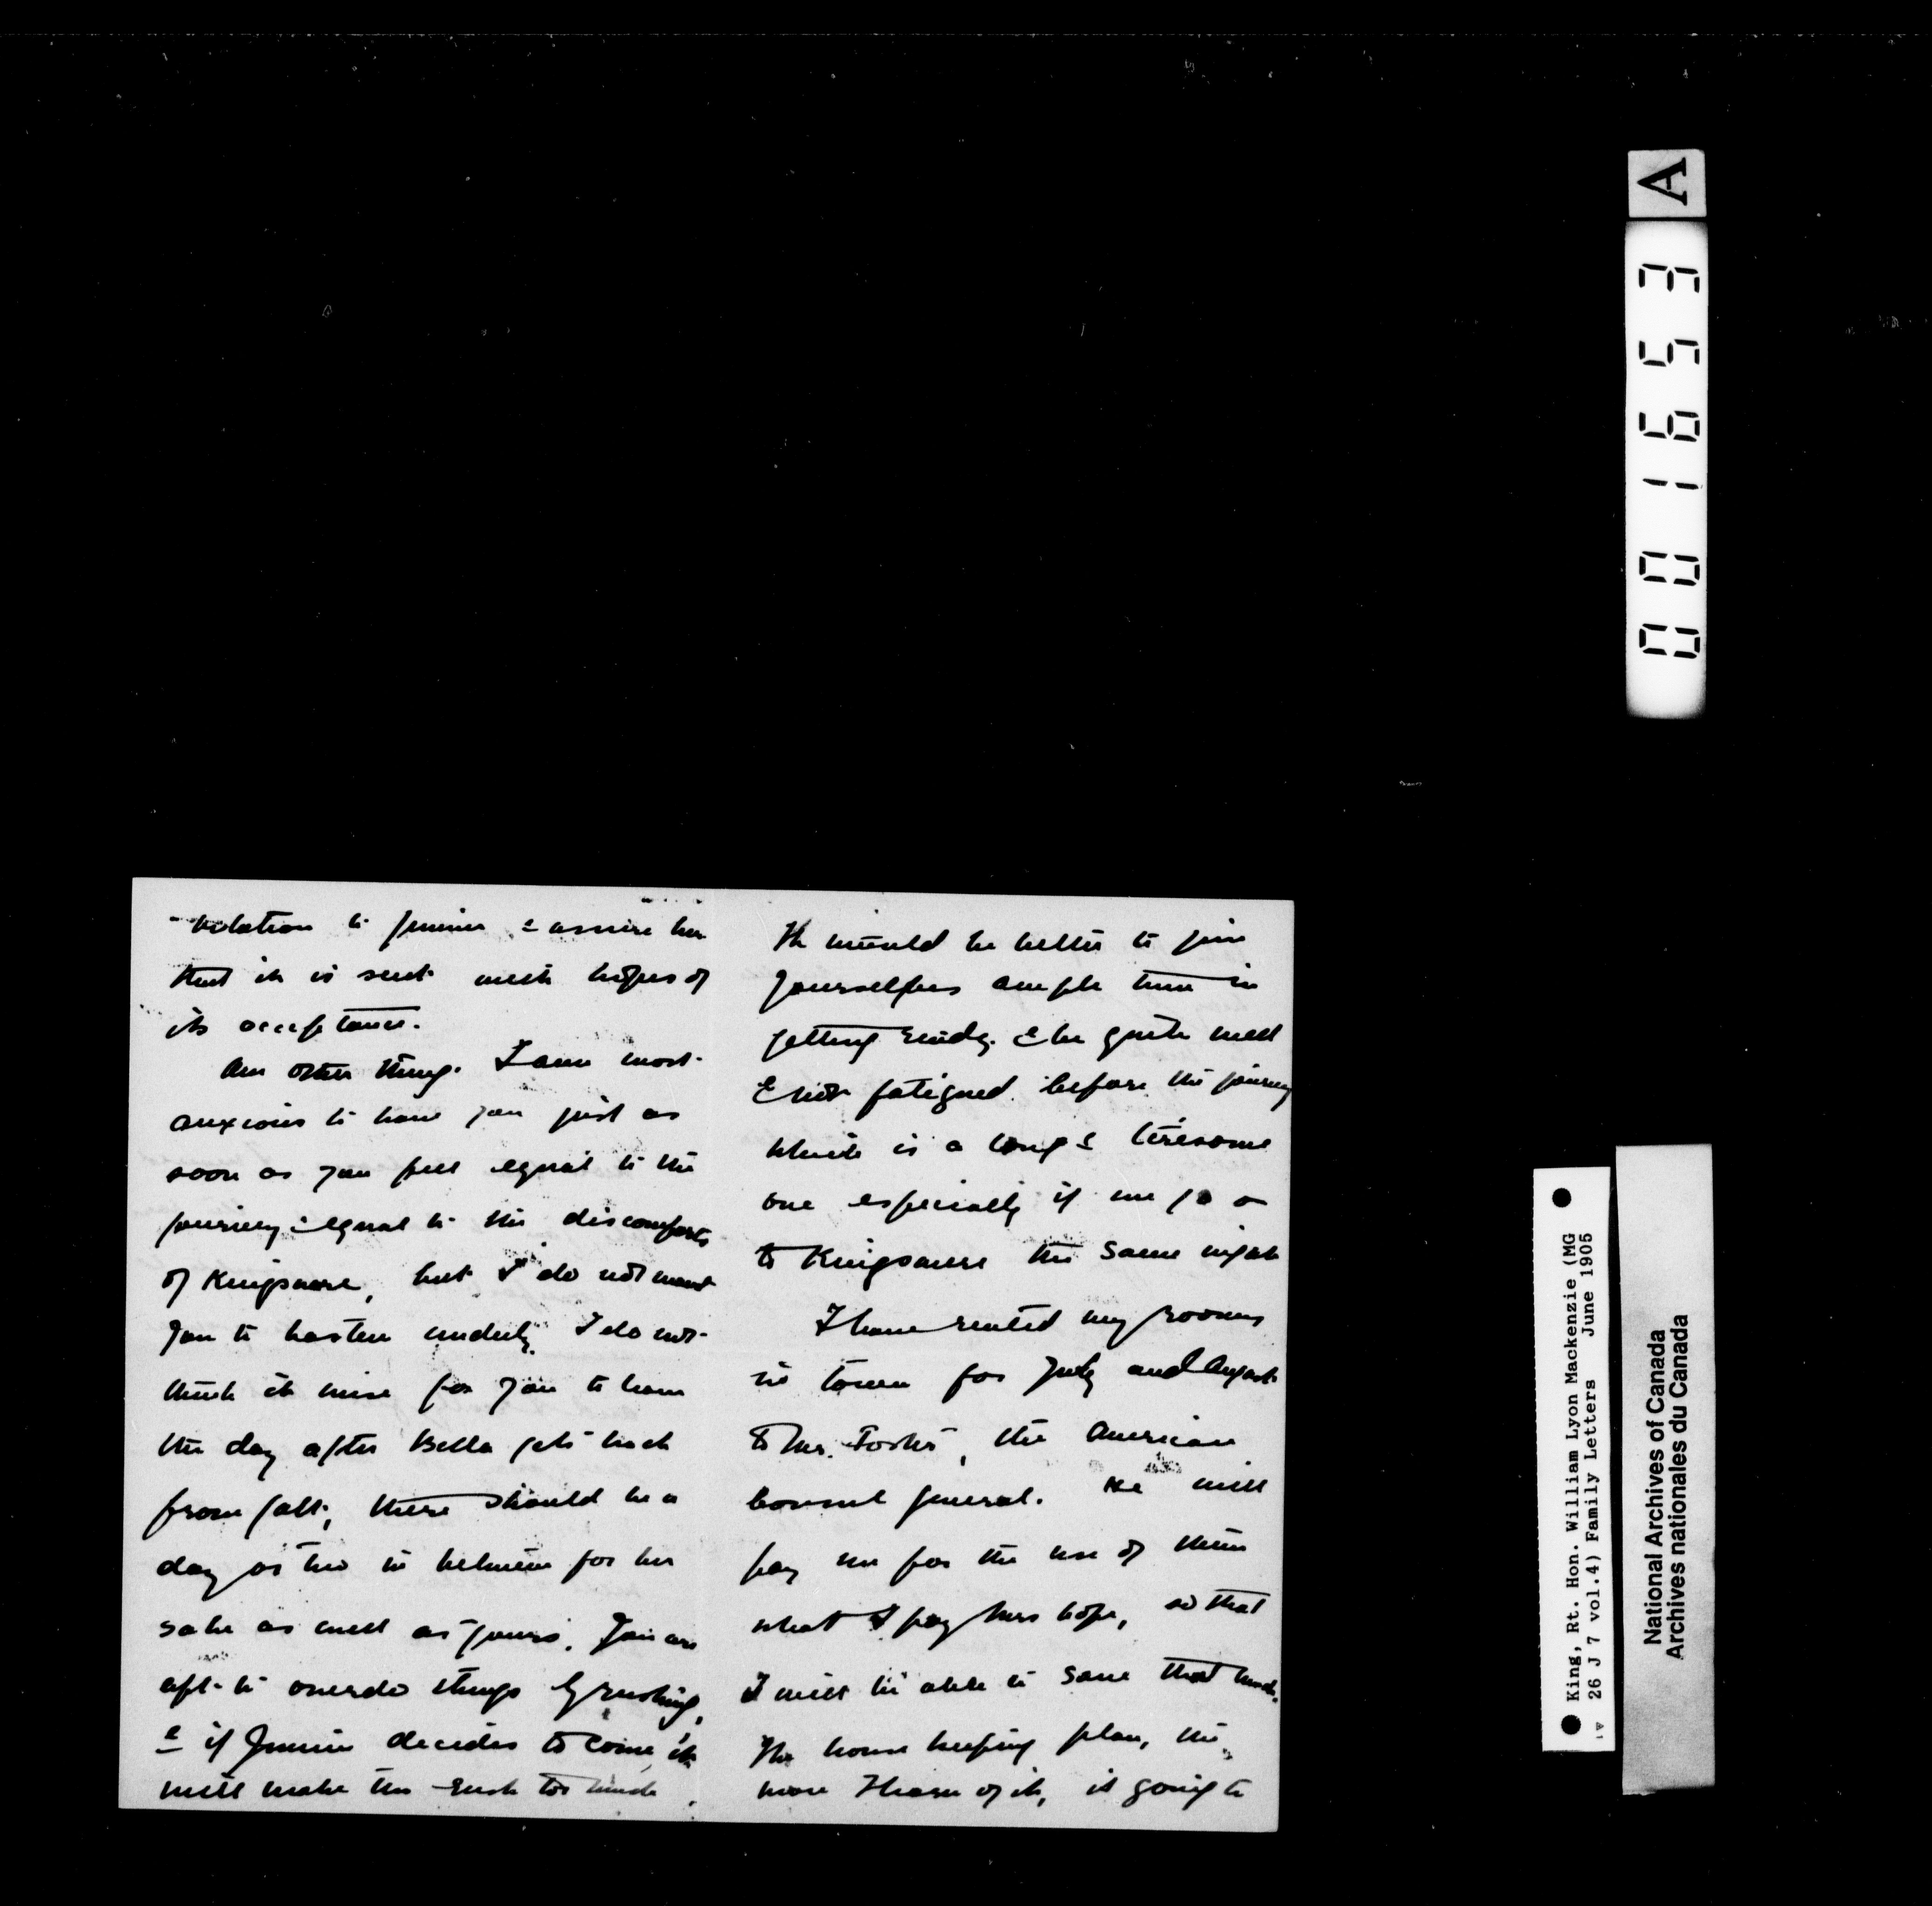 -vitation to Jennie & assure her
that it is sent with hopes of
its acceptance.
One other thing. I am most
anxious to have you just as
soon as you feel equal to the
journey & equal to the discomforts
of Kingsmere, but I do not want
you to hasten unduly. I do not
think it wise for you to leave
the day after Bella gets back
from Galt, there should be a
day or two in between for her
sake as well as yours. You are
apt to overdo things by rushing,
& if Jennie decides to come, it
will make the rush too much.
It would be better to give
yourselves ample time in
getting ready. & be quite well
& not fatigued before the journey
which is a long & tiresome
one especially if we go on
to Kingsmere the same night
I have rented my rooms
in town for July and August
to Mr. Foster, the American
Consul General. He will
pay me for the use of them
what I pay Mrs so that
I will be able to save that much.
The house keeping plan, the
more I hear of it, is going to
A
001653
King, Rt. Hon. William Lyon Mackenzie (MG
26 J 7 vol.4) Family Letters June 1905
National Archives of Canada
Archives nationales du Canada